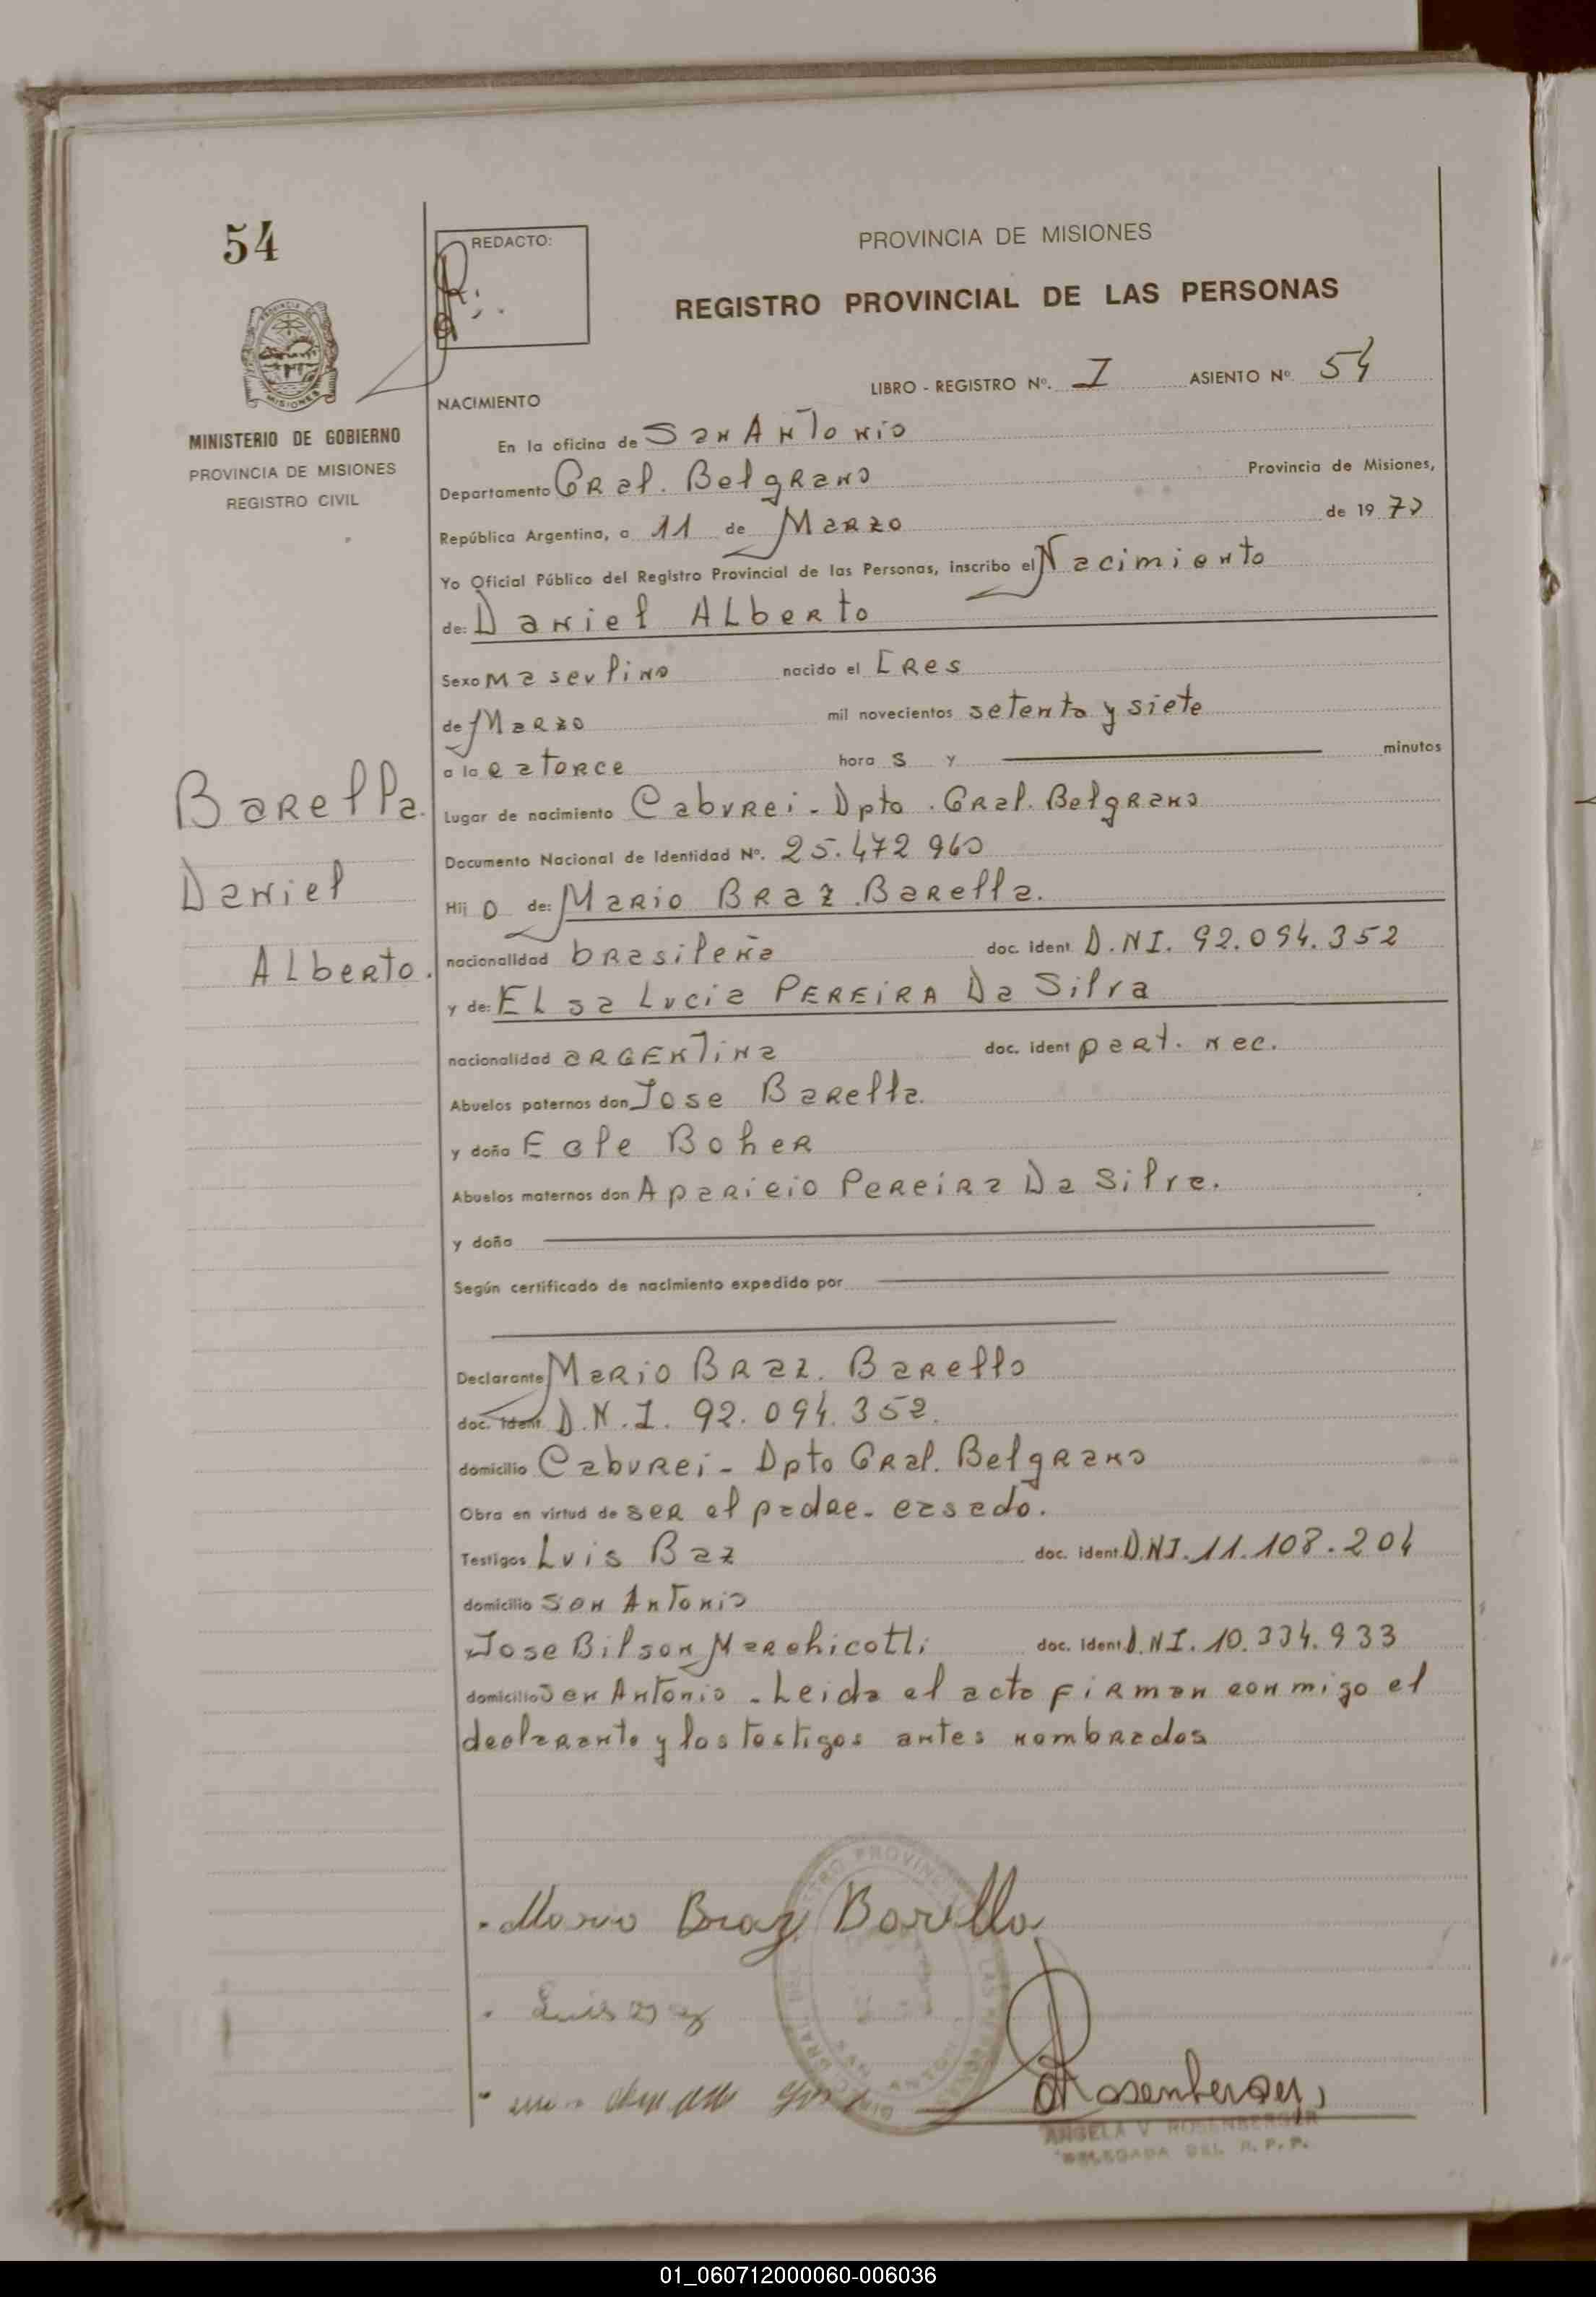 54
REDACTO:
PROVINCIA DE MISIONES
REGISTRO PROVINCIAL DE LAS PERSONAS
LIBRO - REGISTRO Nº. I ASIENTO Nº. 54
NACIMIENTO
MINISTERIO DE GOBIERNO
PROVINCIA DE MISIONES
REGISTRO CIVIL
En la oficina de San Antonio
Departamento Gral. Belgrano Provincia de Misiones,
República Argentina, a 11 de Marzo de 1977
Yo Oficial Público del Registro Provincial de las Personas, inscribo el Nacimiento
de: Daniel ALberto
Sexo masculino nacido el tres
de Marzo mil novecientos setenta y siete
a la catorce hora s y minutos
Barella
Daniel
ALberto.
Lugar de nacimiento Caburei - Dpto. Gral. Belgrano
Documento Nacional de Identidad Nº. 25.472 960
Hij o de: Mario Braz Barella.
nacionalidad brasileña doc. ident. D.NI. 92.094.352
y de: ELsa Lucia PEREiRA Da Silva
nacionalidad ARGENTiNa doc. ident part. nec.
Abuelos paternos don Jose Barella.
y doña Egle Boher
Abuelos maternos don Aparicio Pereira Da Silva.
y doña
Según certificado de nacimiento expedido por
Declarante Mario Braz. Barella
doc. ident. D.N.I. 92.094.352.
domicilio Caburei - Dpto Gral. Belgrano
Obra en virtud de ser el padre - casado.
Testigos Luis Baz doc. ident. D.NI. 11.108.204
domicilio San Antonio
Jose Bilson Marchicotti doc. ident. D.NI. 10.334.933
domicilio San Antonio - Leida el acta firman conmigo el
declarante y los testigos antes nombrados
Mario Braz Barella
Luis
Rosenberger
ANGELA V. ROSENBERGER
DELEGADA DEL R.P.P.
01_060712000060-006036